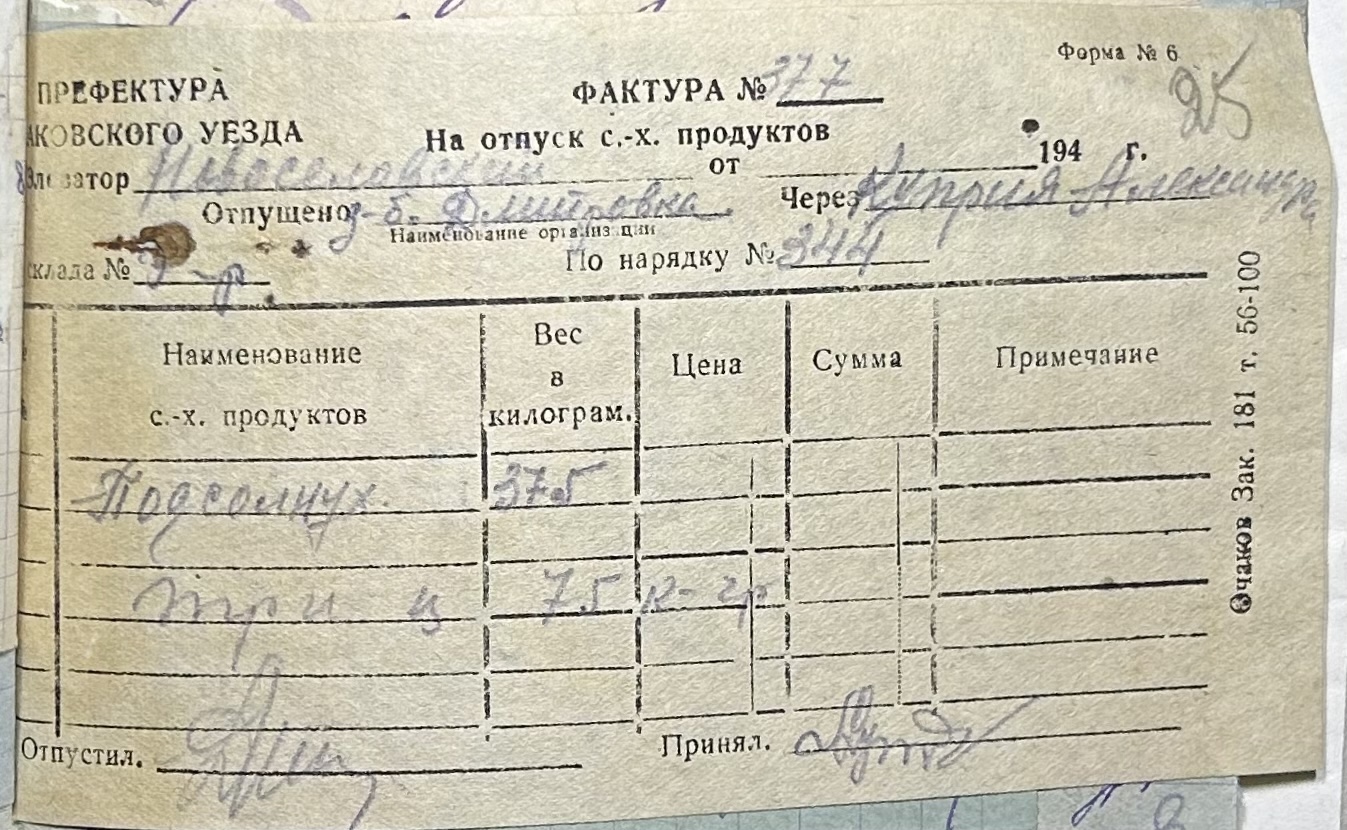 Форма № 6
25
ПРЕФЕКТУРА
ФАКТУРА № 377
АКОВСКОГО УЕЗДА
На отпуск с.-х. продуктов
Элеватор Новоселовский от 194 г.
Отпущено з-б. Дмитровка. Через Куприя Александра
Наименование организации
склада № По нарядку № 344
Наименование с.-х. продуктов
Вес в килограм.
Цена
Сумма
Примечание
Подсолнух. 375
три ц 75 к-гр
Отпустил. Принял.
Очаков Зак. 181 т. 56-100